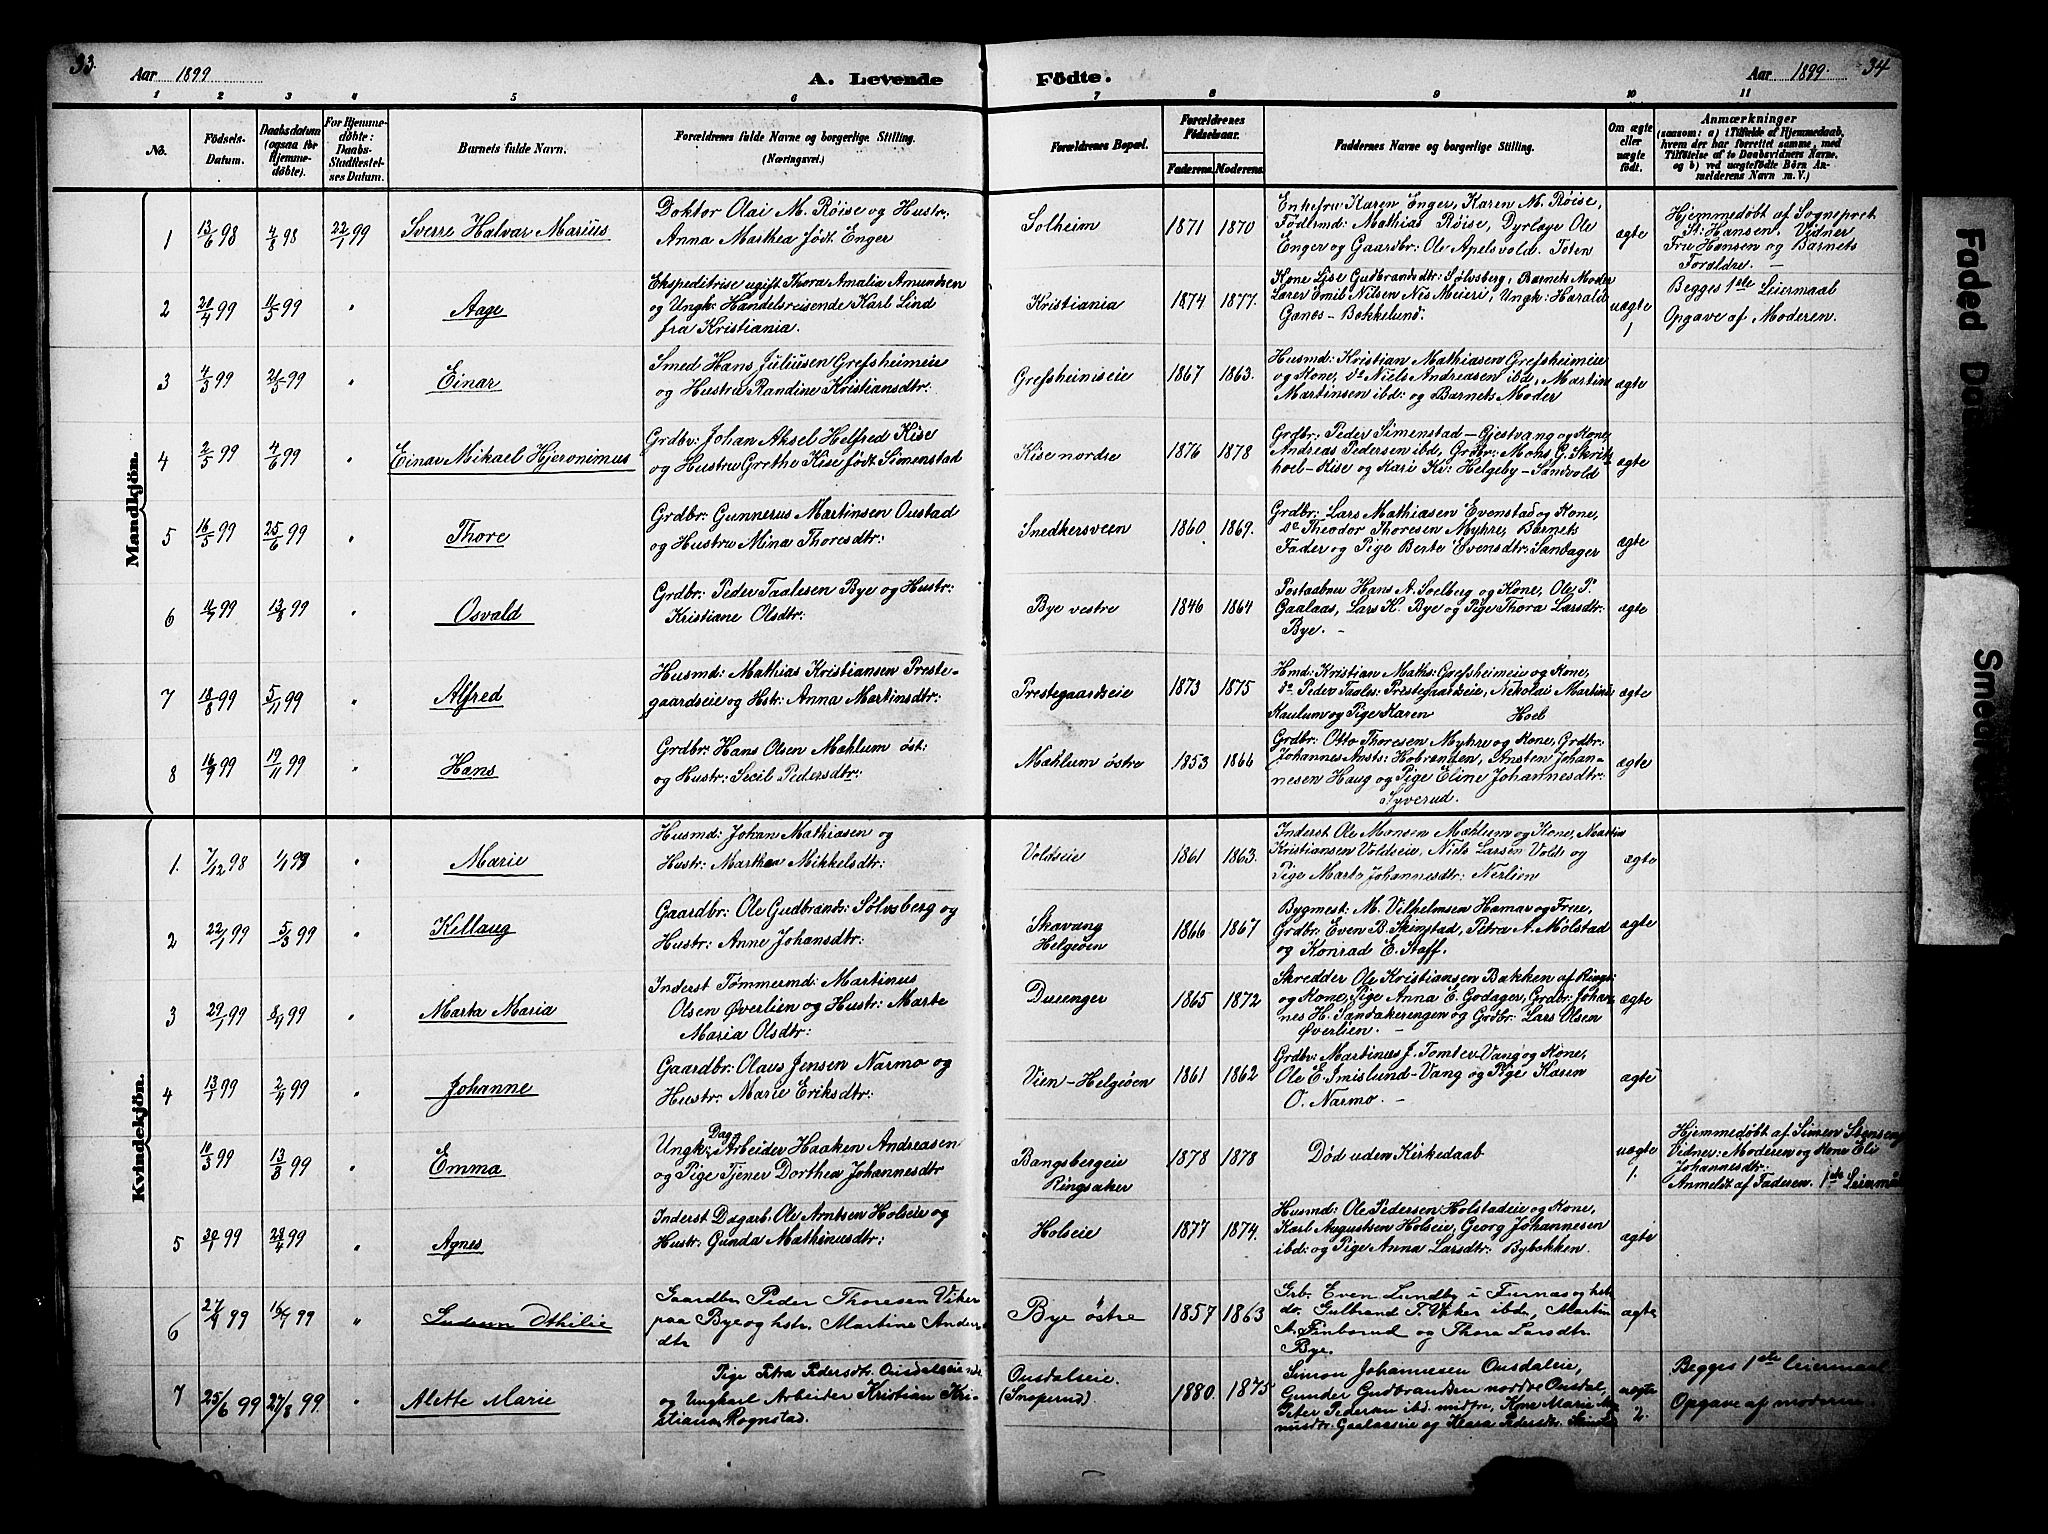 33.
Aar 1899
A. Levende Födte.
Aar 1899.
34
1 2 3 4 5 6 7 8 9 10 11
No.
Födsels-Datum.
Daabsdatum (ogsaa for Hjemmedöbte).
For Hjemmedöbte: Daabs-Stadfæstelses Datum.
Barnets fulde Navn.
Forældrenes fulde Navne og borgerlige Stilling.
(Næringsvei.)
Forældrenes Bopæl.
Forældrenes Födselsaar.
Faderens. Moderens.
Faddernes Navne og borgerlige Stilling.
Om ægte eller uægte födt.
Anmærkninger
(saasom: a) i Tilfælde af Hjemmedaab,
hvem der har forrettet samme, med
Tilföielse af to Daabsvidners Navne,
og b) ved uægtefödte Börn Anmelderens Navn m. V.)
Mandkjön.
1 13/6 98 4/8 98 22/1 99 Sverre Halvar Marius
Doktor Olai M. Röise og Hustr:
Anna Marthea født Enger
Solheim 1871 1870
Enkefru Karen Enger, Karen M. Röise,
Födelmd: Mathias Röise, Dyrlæge Ole
Enger og Gaardbr: Ole Apelsvold. Toten
ægte
Hjemmedöbt af Sognepret
St: Hansen, Vidner
Fru Hansen og Barnets
Forældre. –
2 20/4 99 11/5 99 " Aage
Ekspeditrise ugift Thora Amalia Amundsen
og Ungk: Handelsreisende Karl Lind
fra Kristiania.
Kristiania 1874 1877.
Kone Lise Gudbrandsdtr: Sølvsberg, Barnets Moder
Lærer Emil Nilsen Nes Meieri, Ungk: Harald
Ganes – Bokkelund.
uægte 1
Begges 1ste Leiermaal
Opgave af Moderen.
3 4/3 99 21/5 99 " Einar
Smed Hans Juliusen Grefsheimeie
og Hustru Randine Kristiansdtr:
Grefsheimseie 1867 1863.
Husmd: Kristian Mathiasen Grefsheimeie
og Kone, do Niels Andreasen ibd, Martin
Martinsen ibd: og Barnets Moder
ægte
4 2/5 99 4/6 99 " Einar Mikael Hjeronimus
Grdbr: Johan Aksel Helfred Kise
og Hustru Grethe Kise født Simenstad
Kise nordre 1876 1878
Grdbr: Peder Simenstad – Gjestvang og Kone,
Andreas Pedersen ibd, Grdbr: Mons G. Skriks
hoel – Kise og Kari Kr: Helgeby – Sandvold
ægte
5 16/5 99 25/6 99 " Thore
Grdbr: Gunnerus Martinsen Oustad
og Hustru Mina Thoresdtr:
Snedkersveen 1860 1869.
Grdbr: Lars Mathiasen Evenstad og Kone,
do Theodor Thoresen Myhre, Barnets
Fader og Pige Berte Evensdtr: Sandager
ægte
6 11/7 99 13/8 99 " Osvald
Grdbr: Peder Taalesen Bye og Hustr:
Kristiane Olsdtr:
Bye vestre 1846 1864
Postaabner Hans A. Solberg og Kone, Ole P.
Gaalaas, Lars K. Bye og Pige Thora Larsdtr:
Bye. –
ægte
7 18/8 99 5/11 99 " Alfred
Husmd: Mathias Kristiansen Preste-
gaardseie og Hstr: Anna Martinsdtr:
Prestegaardseie 1873 1875
Hmd: Kristian Maths: Grefsheimeie og Kone,
do. Peder Taales: Prestegaardseie, Nikolai Martins
Kaulum og Pige Karen Hoel
ægte
8 16/9 99 19/11 99 " Hans
Grdbr: Hans Olsen Mæhlum öst:
og Hustr: Secil Pedersdtr:
Mæhlum østre 1853 1866
Grdbr: Otto Thoresen Myhre og Kone, Grdbr:
Johannes Ansts: Hobrenden, Ansten Johan-
nesen Haug og Pige Eline Johannesdtr:
Syverud.
ægte
Kvindekjön.
1. 7/12 98 1/1 99 " Marie
Husmd: Johan Mathiasen og
Hustr: Marthea Mikkelsdtr:
Voldseie 1861 1863.
Inderst Ole Monsen Mæhlum og Kone, Martin
Kristiansen Voldseie, Niels Larsen Vold og
Pige Marta Johannesdtr: Nerlien
ægte
2 22/1 99 5/3 99 " Killaug
Gaardbr: Ole Gudbrands: Sølvsberg og
Hustr: Anne Johansdtr:
Skavang
Helgøen 1866 1867
Bygmest: M. Vilhelmsen Hamar og Frue,
Grdbr: Even B. Skinstad, Petra A. Molstad
og Konrad E. Staff.
ægte
3 29/1 99 8/4 99 " Marta Maria
Inderst Tömmermd: Martinus
Olsen Øverlien og Hustr: Marte
Maria Olsdtr:
Durenger 1865 1872
Skredder Ole Kristiansen Bakken af Rings:
og Kone, Pige Anna E. Godager, Grdbr: Johan-
nes H. Sandakerengen og Grdbr: Lars Olsen
Øverlien. –
ægte
4 13/1 99 2/4 99 " Johanne
Gaardbr: Olaus Jensen Narmo og
Hustr: Marie Eriksdtr:
Vien – Helgøen 1861 1862
Grdbr: Martinus J. Tomter Vang og Kone,
Ole E. Imislund – Vang og Pige Karen
O. Narmo. –
ægte
10/3 99 13/3 99 " Emma
Ungk: Dag Arbeider Haaken Andreasen
og Pige Tjener Dorthea Johannesdtr
Bangsbergeie
Ringsaker 1878 1878
Död uden Kirkedaab
uægte 1.
Hjemmedöbt af Simen Stenseng
Vidner: Moderen og Kone Eli
Johannesdtr:
Anmeldt af Faderen. 1ste Leiermaal
5 30/1 99 23/4 99 " Agnes
Inderst Dagarb: Ole Arntsen Holseie og
Hustr: Gunda Mathinusdtr:
Holseie 1877 1874.
Husmd: Ole Pedersen Holstadeie og Kone,
Karl Augustsen Holseie, Georg Johannesen
ibd: og Pige Anna Larsdtr: Bybakken.
ægte
6 27/4 99 16/7 99 " Gudrun Othilie
Gaardbr Peder Thoresen Viker
paa Bye og hstr. Martine Anders
dtr
Bye östre 1857 1863
Grb. Even Lundby i Furnas og hstr
do. Gulbrand T. Viker ibd, Martin
A. Finborud og Thora Larsdtr.
Bye.
ægte
7 25/6 99 27/8 99. " Alette Marie
Pige Petra Pedersdtr. Ousdalseie
og Ungkarl Arbeider Kristian Kri-
stiansen Rognstad.
Ousdalseie.
(Snoperud) 1880 1875
Simon Johannesen Ousdaleie,
Gunder Gudbrandsen nordre Ousdal,
Peter Pedersen ibd. midtre, Kone Marie
Gaalaaseie og Klara Pedersdtr.
uægte 2.
Begges 1ste Leiermaal
Opgave af moderen
Faded
Smear